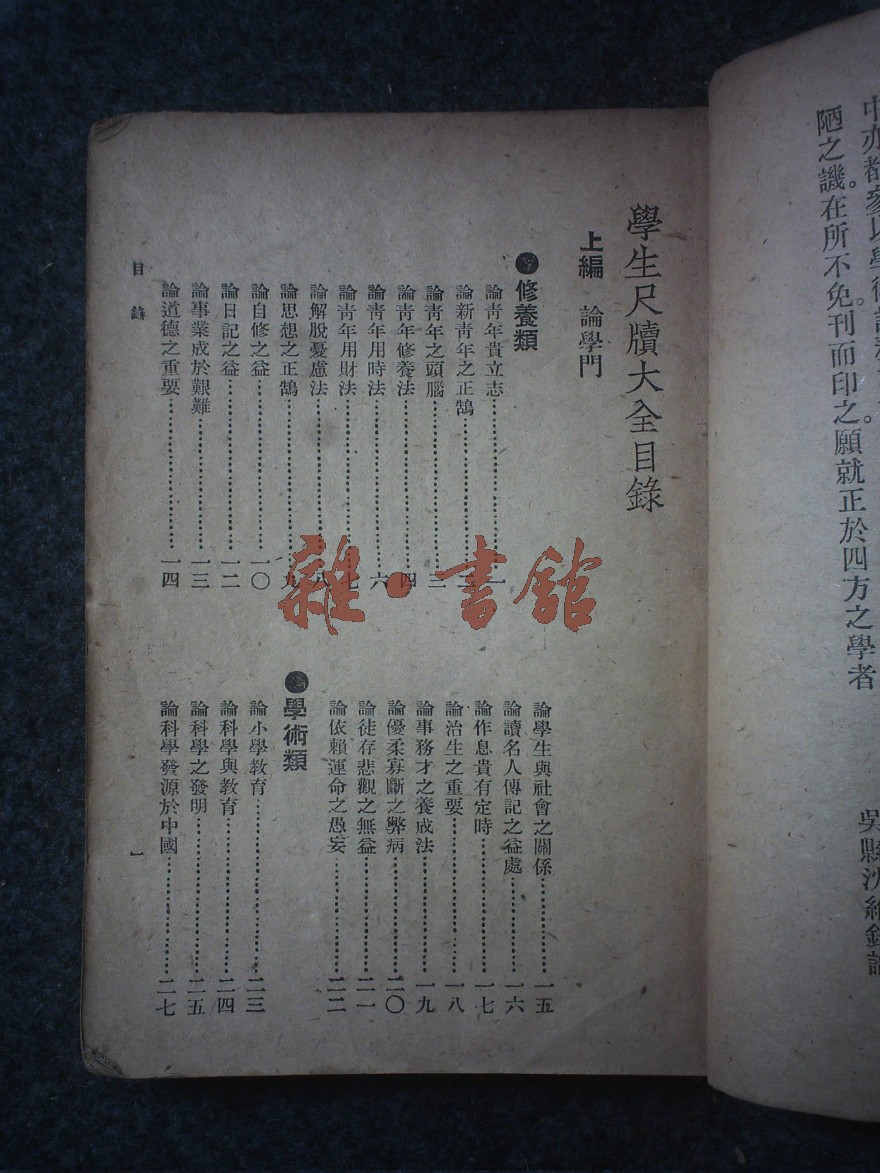 陋之譏。在所不免。刊而印之。願就正於四方之學者
學生尺牘大全目錄
上編 論學門
修養類
論青年貴立志……一
論新青年之正鵠……二
論青年之頭腦……三
論青年修養法……四
論青年用時法……六
論青年用財法……七
論解脫憂慮法……八
論思想之正鵠……九
論自修之益……一〇
論日記之益……一二
論事業成於艱難……一三
論道德之重要……一四
論學生與社會之關係……一五
論讀名人傳記之益處……一六
論作息貴有定時……一七
論治生之重要……一八
論事務才之養成法……一九
論優柔寡斷之弊病……二〇
論徒存悲觀之無益……二一
論依賴運命之愚妄……二二
學術類
論小學教育……二三
論科學與教育……二四
論科學之發明……二五
論科學發源於中國……二七
目錄
一
雜·書館